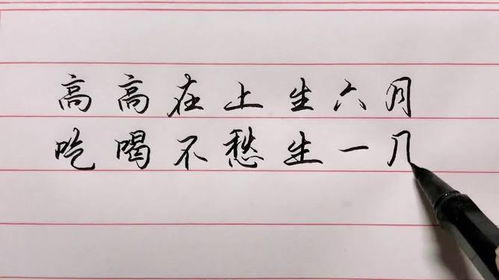 高高在上生六月
吃喝不愁生一